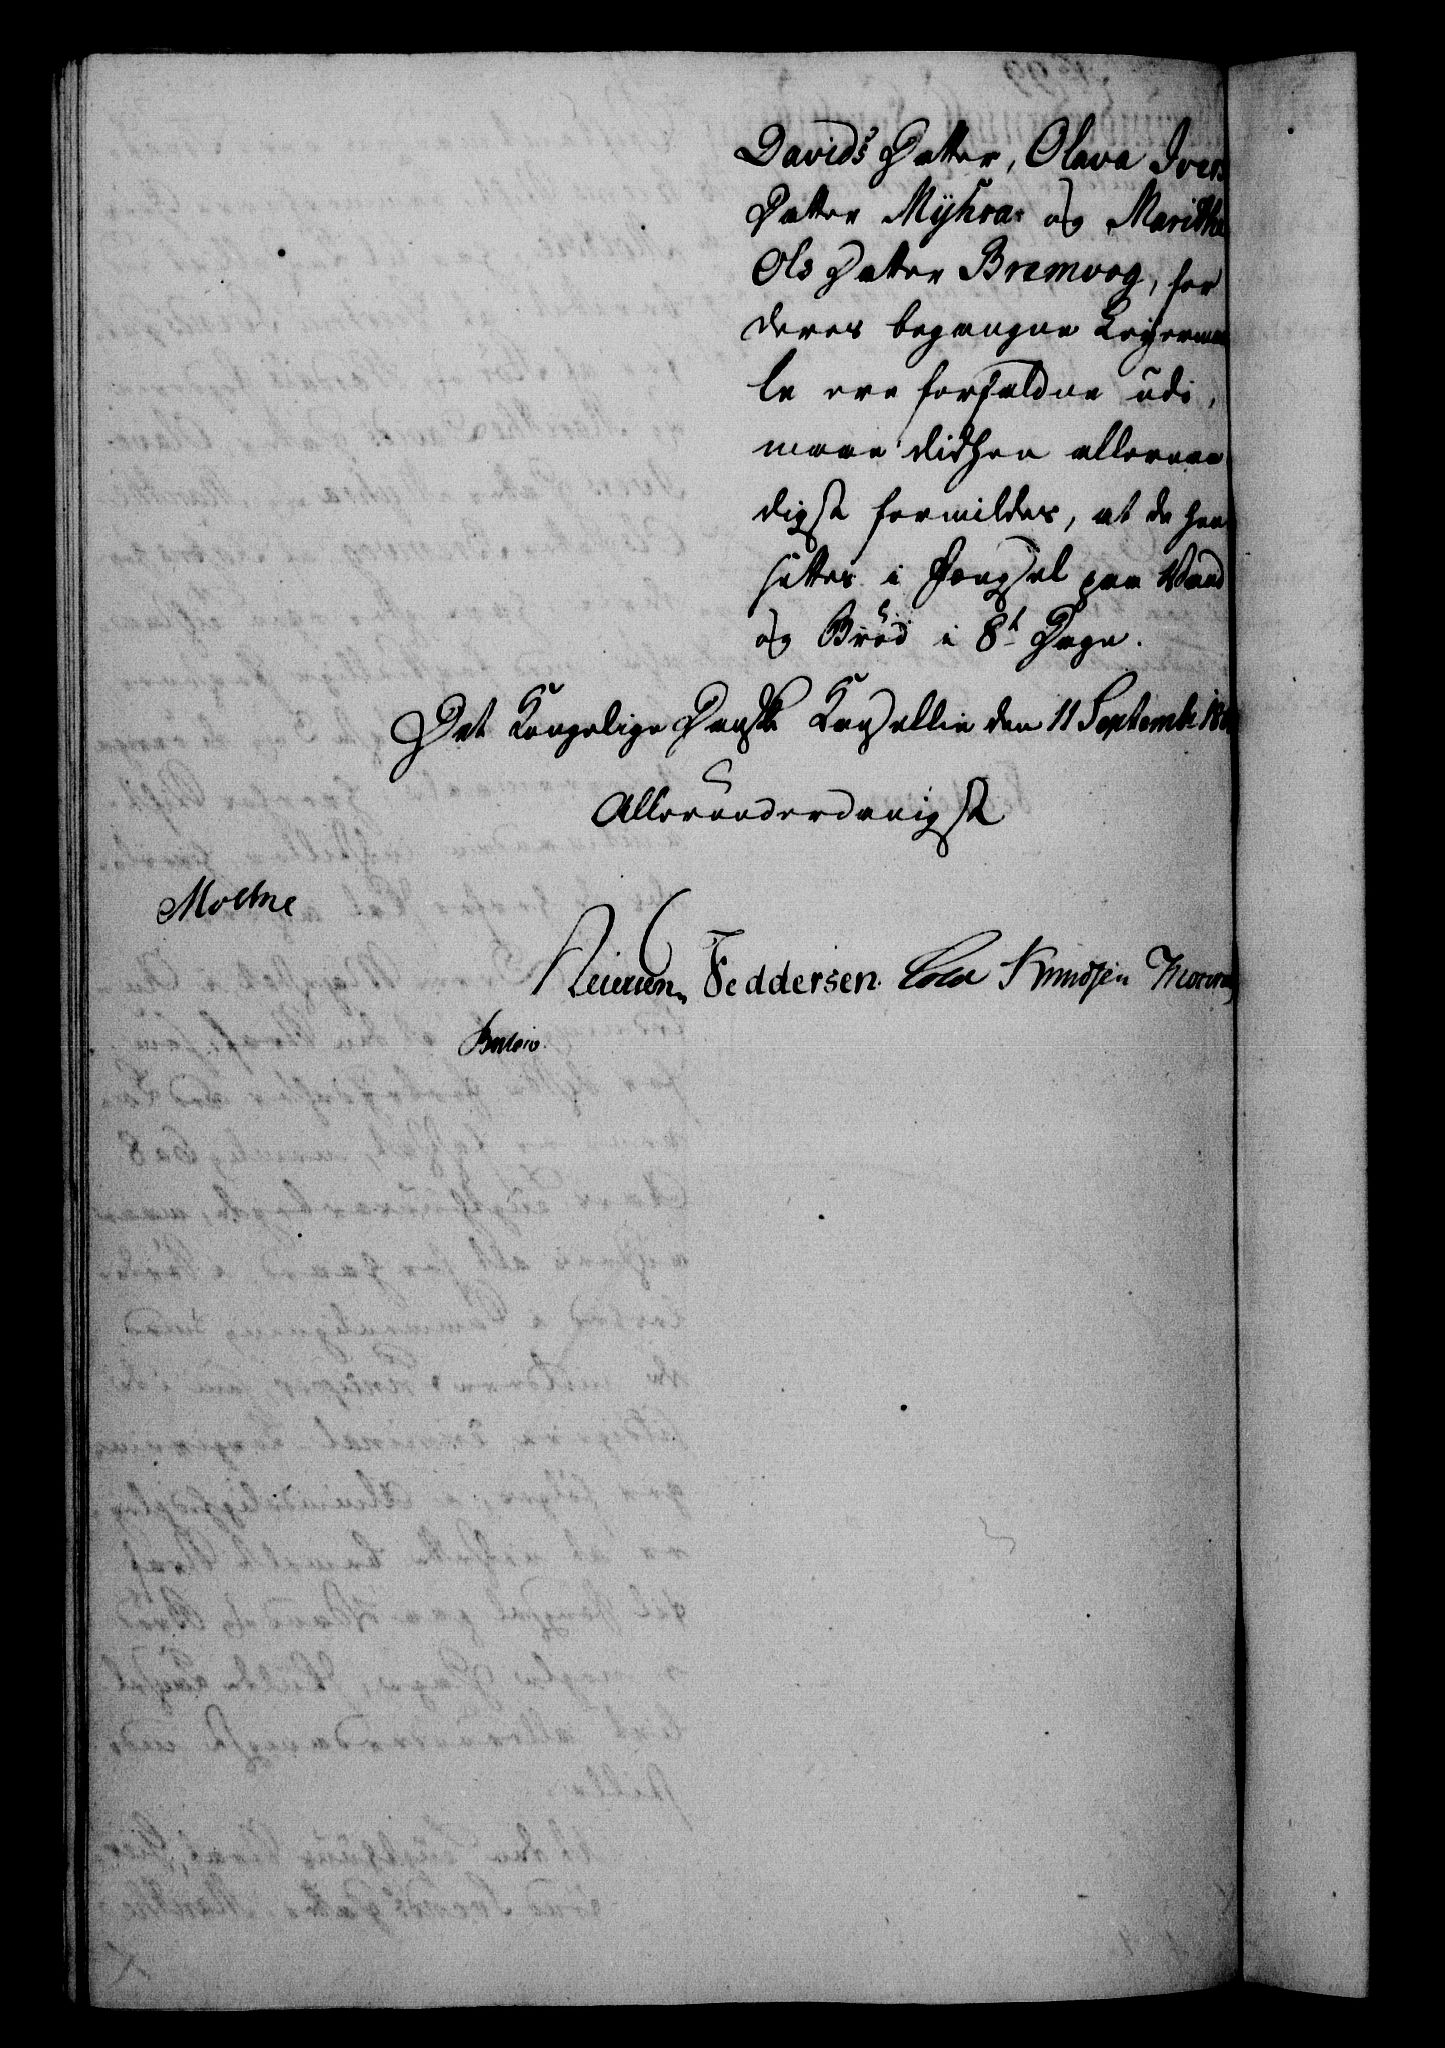 Davids Datter, Olava Ivers
Datter Myhra og Marithe
Ols Datter Bremvog, for
deres begangne Leyermaa
le ere forfaldne udi,
maae didhen allernaa
digst formildes, at de hen
sættes i Fængsel paa Vand
og Brød i 8te Dage.
Det Kongelige Danske Kancellie den 11 Septemb: 18
Allerunderdanigst
Moltke
Reiersen Feddersen. Cold Knudsen Monrad
Berner